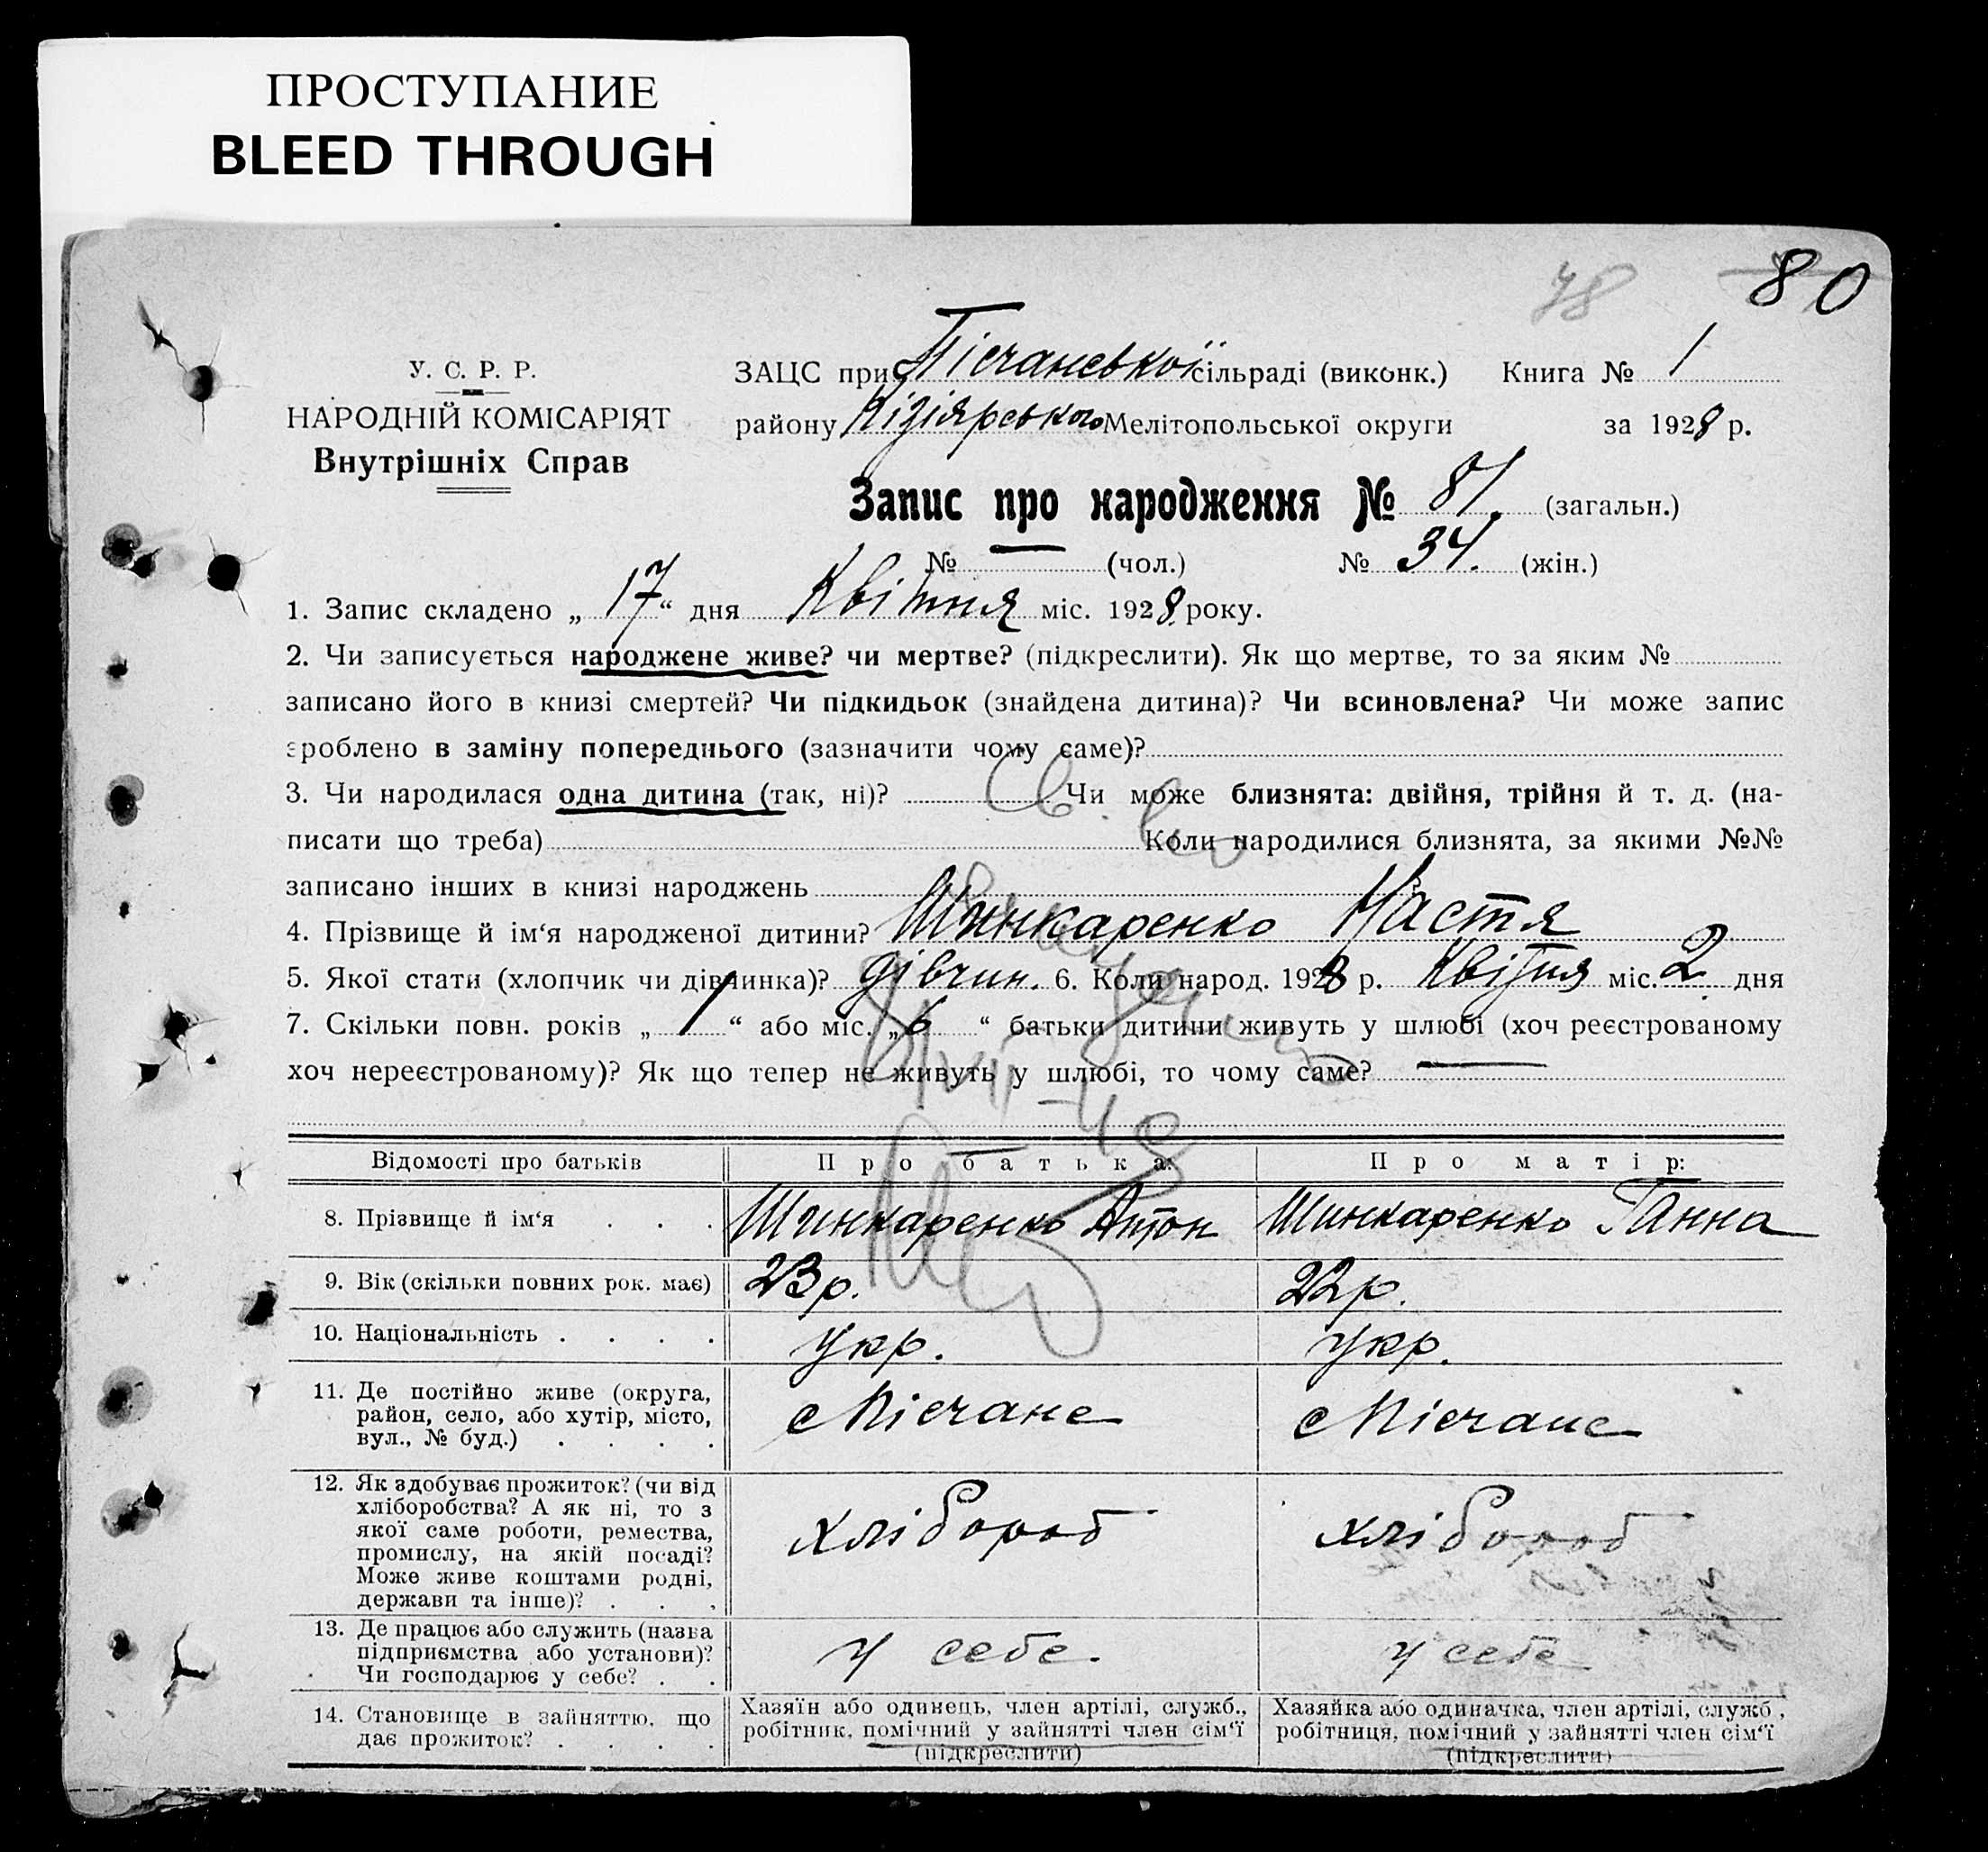 ПРОСТУПАНИЕ
BLEED THROUGH
78 80
У. С. Р. Р.
НАРОДНІЙ КОМІСАРІЯТ
Внутрішніх Справ
ЗАЦС при Пісчанської сільраді (виконк.) Книга № 1
району Кізіярського Мелітопольської округи за 1928 р.
Запис про народження № 81. (загальн.)
№ — (чол.) № 34. (жін.)
1. Запис складено „ 17 “ дня Квітня міс. 1928 року.
2. Чи записується народжене живе? чи мертве? (підкреслити). Як що мертве, то за яким №
записано його в книзі смертей? Чи підкидьок (знайдена дитина)? Чи всиновлена? Чи може запис
зроблено в заміну попереднього (зазначити чому саме)?
3. Чи народилася одна дитина (так, ні)? Чи може близнята: двійня, трійня й т. д. (на-
писати що треба) Коли народилися близнята, за якими №№
записано інших в книзі народжень
4. Прізвище й ім‘я народженої дитини? Шинкаренко Настя
5. Якої стати (хлопчик чи дівчинка)? дівчин. 6. Коли народ. 1928 р. Квітня міс. 2 дня
7. Скільки повн. років „ 1 “ або міс. „ 6 “ батьки дитини живуть у шлюбі (хоч реєстрованому
хоч нереєстрованому)? Як що тепер не живуть у шлюбі, то чому саме? —
Відомості про батьків Про батька: Про матір:
8. Прізвище й ім‘я . . . Шинкаренко Антон Шинкаренко Ганна
9. Вік (скільки повних рок. має) 23 р. 22 р.
10. Національність . . . . укр. укр.
11. Де постійно живе (округа,
район, село, або хутір, місто,
вул., № буд.) . . . .
с Пісчане с Пісчане
12. Як здобуває прожиток? (чи від
хліборобства? А як ні, то з
якої саме роботи, ремества,
промислу, на якій посаді?
Може живе коштами родні,
держави та інше)? . . .
хлібороб хлібороб
13. Де працює або служить (назва
підприємства або установи)?
Чи господарює у себе? . .
у себе. у себе
14. Становище в зайняттю, що
дає прожиток? . . . .
Хазяїн або одинець, член артілі, служб.,
робітник, помічний у зайнятті член сім‘ї
(підкреслити)
Хазяйка або одиначка, член артілі, служб.,
робітниця, помічний у зайнятті член сім‘ї
(підкреслити)